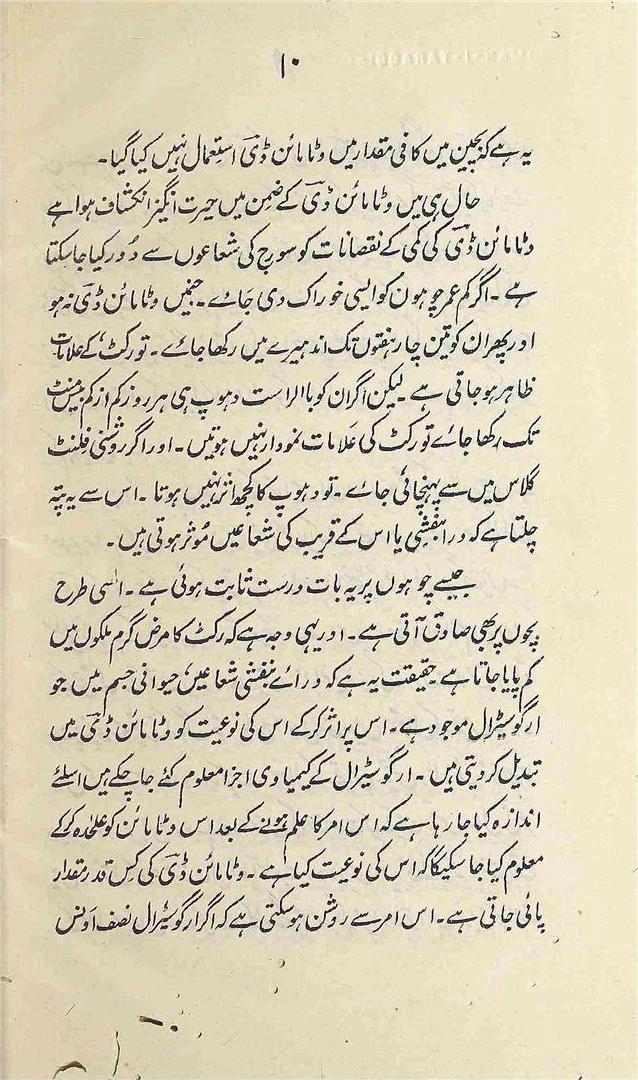 ۱۰
یہ ہے کہ بچپن میں کافی مقدار میں وٹامائن ڈی استعمال نہیں کیا گیا۔
حال ہی میں وٹامائن ڈی کے ضمن میں حیرت انگیز انکشاف ہوا ہے
وٹامائن ڈی کی کمی کے نقصانات کو سورج کی شعاعوں سے دُور کیا جا سکتا
ہے۔ اگر کم عمر چوہون کو ایسی خوراک دی جائے۔ جنمیں وٹامائن ڈی نہ ہو
اور پھر ان کو تین چار ہفتوں تک اندہیرے میں رکھا جائے۔ تو رکٹ، کے علامات
ظاہر ہو جاتی ہے۔ لیکن اگر ان کو باالراست دہوپ ہی ہر روز کم از کم بیس منٹ
تک رکھا جائے تو رکٹ کی علامات نمودار نہیں ہوتیں۔ اور اگر روشنی فلنٹ
گلاس میں سے پہنچائی جائے۔ تو دہوپ کا کچھ اثر نہیں ہوتا۔ اس سے یہ پتہ
چلتا ہے کہ ورا بنفشی یا اس کے قریب کی شعاعیں مُوثر ہوتی ہیں۔
جیسے چوہوں پر یہ بات درست ثابت ہوئی ہے۔ اسی طرح
بچوں پر بھی صادق آتی ہے۔ اور یہی وجہ ہے کہ رکٹ کا مرض گرم ملکوں میں
کم پایا جاتا ہے حقیقت یہ ہے کہ ورائے بنفشی شعاعیں، حیوانی جسم میں جو
ارگوسیٹرال موجود ہے۔ اس پر اثر کر کے اس کی نوعیت کو وٹامائن ڈی میں
تبدیل کر دیتی ہیں۔ ارگوسیٹرال کے کیمیاوی اجزا معلوم کئے جا چکے ہیں اسلئے
اندازہ کیا جا رہا ہے کہ اس امر کا علم ہونے کے بعد اس وٹامائن کو علحٰدہ کر کے
معلوم کیا جا سکیگا کہ اس کی نوعیت کیا ہے۔ وٹامائن ڈی کی کس قدر مقدار
پائی جاتی ہے۔ اس امر سے روشن ہو سکتی ہے کہ اگر ارگوسٹرال نصف اونس